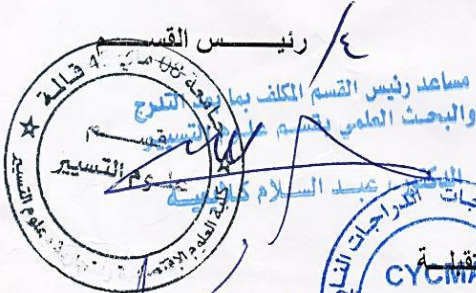 ع/ رئيس القسم
مساعد رئيس القسم المكلف بما بعد التدرج
والبحث العلمي بقسم علوم التسيير
الدكتور: عبد السلام
جامعة 08 ماي 45 قالمة
قسم
علوم التسيير
كلية العلوم الاقتصادية و التجارية و علوم التسيير
الدراجات النارية
CYCMA